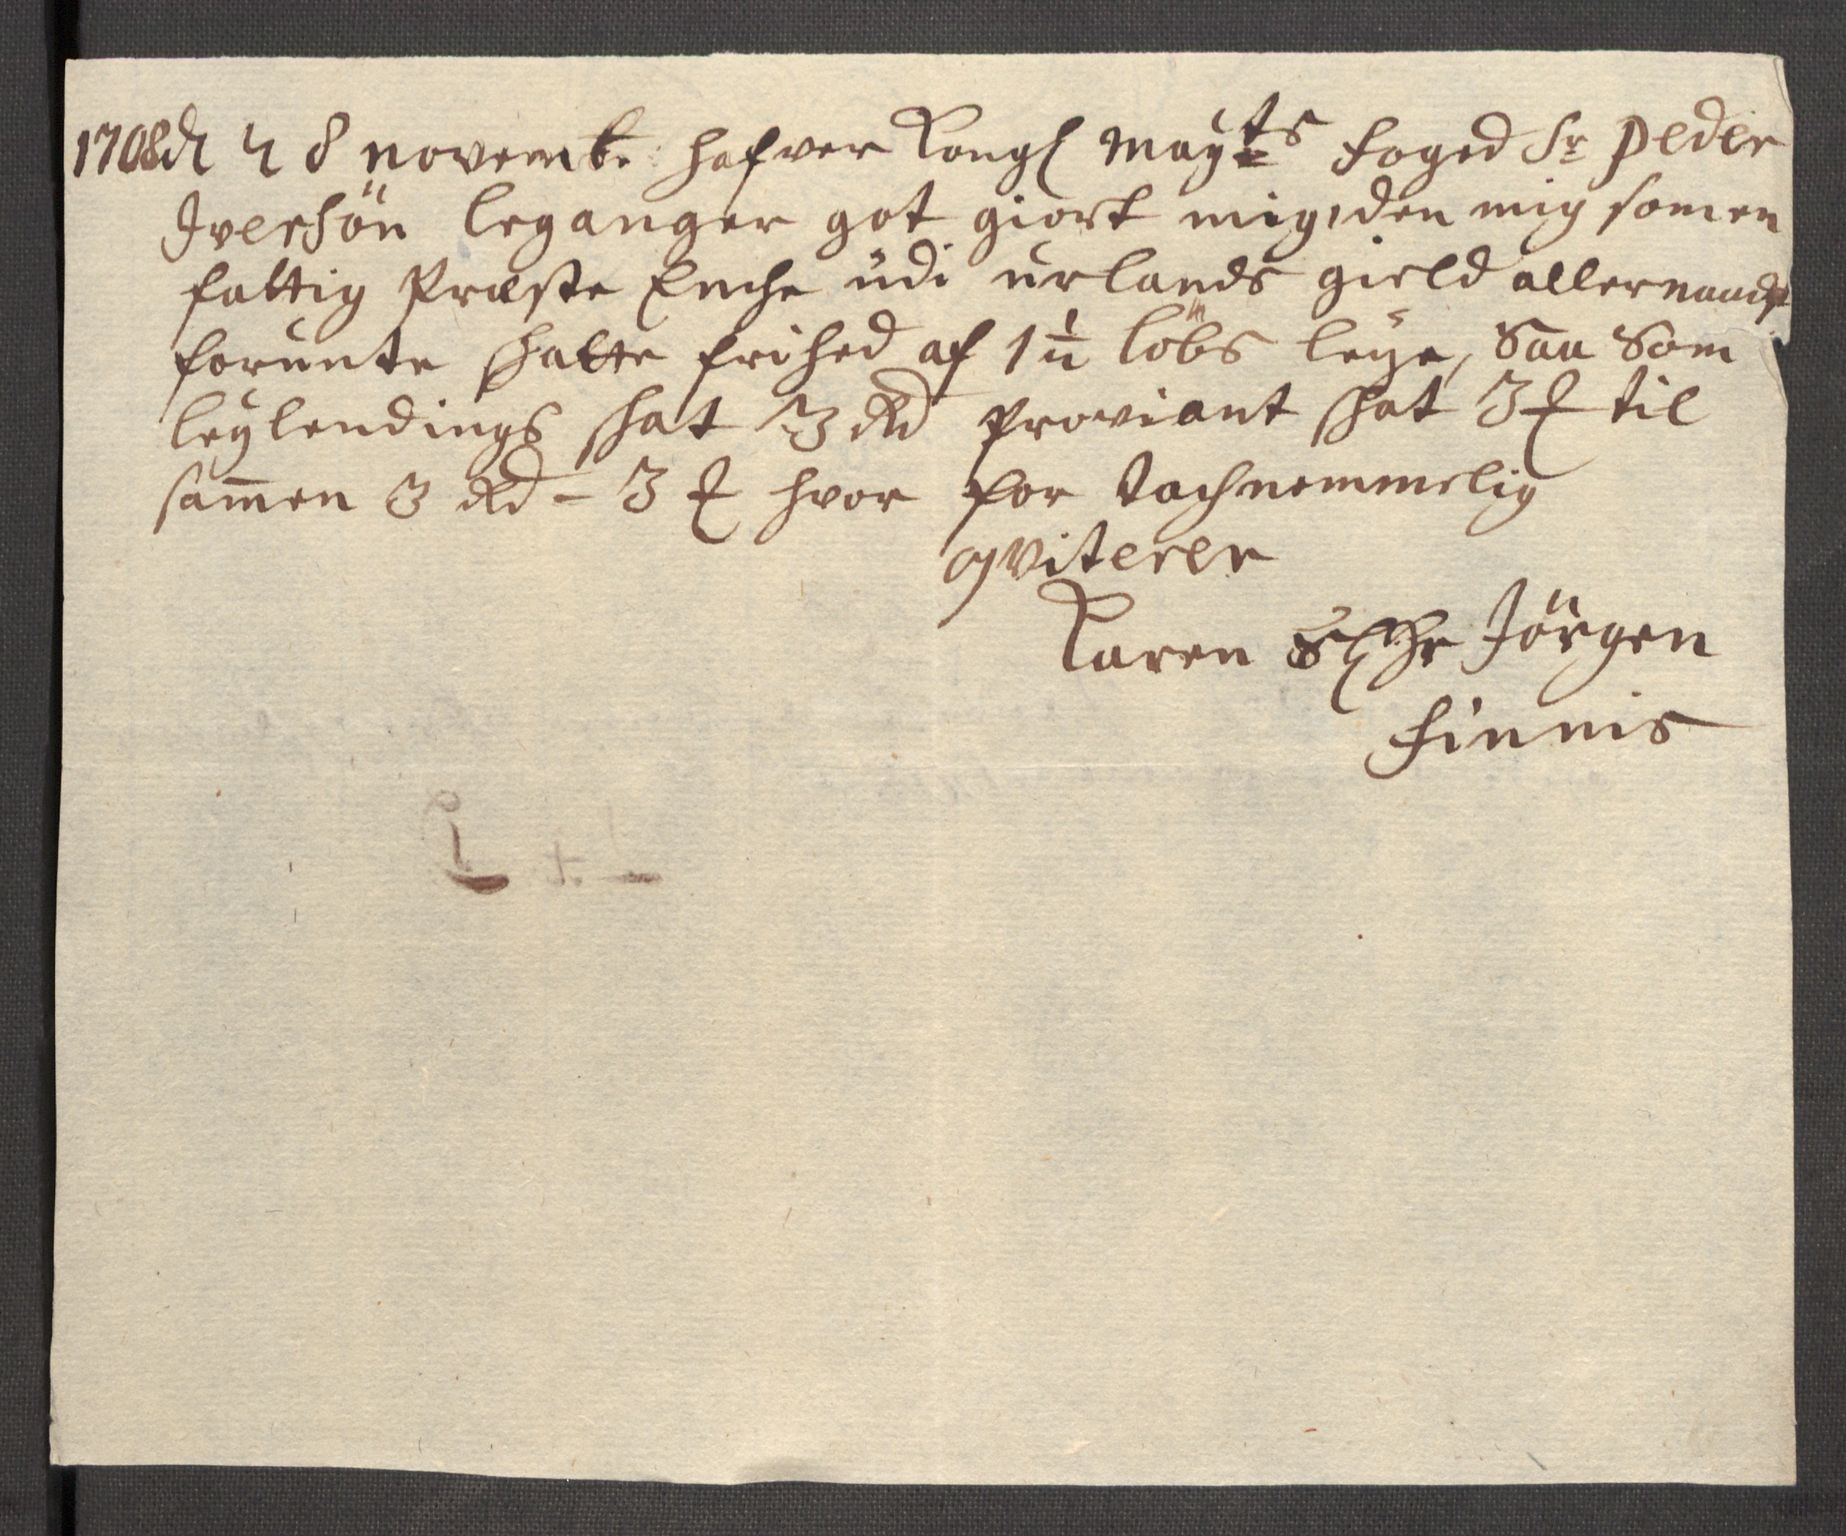 1708 d 28 novemb. hafver Kongl Maytts foged Sr Peder
Iversön leganger got giort mig, den mig som en
fattig Præste Enche üdi ürlands gield allernaadst
forünte skatte frihed af 1½ löbs leÿe, Saa Som
leÿlendings skat 3 Rd proviant skat 3 ₰ til
sam̄en 3 Rd - 3 ₰ hvor for tachnemmelig
qviterer
Karen Sl Hr Jörgen
Finnis